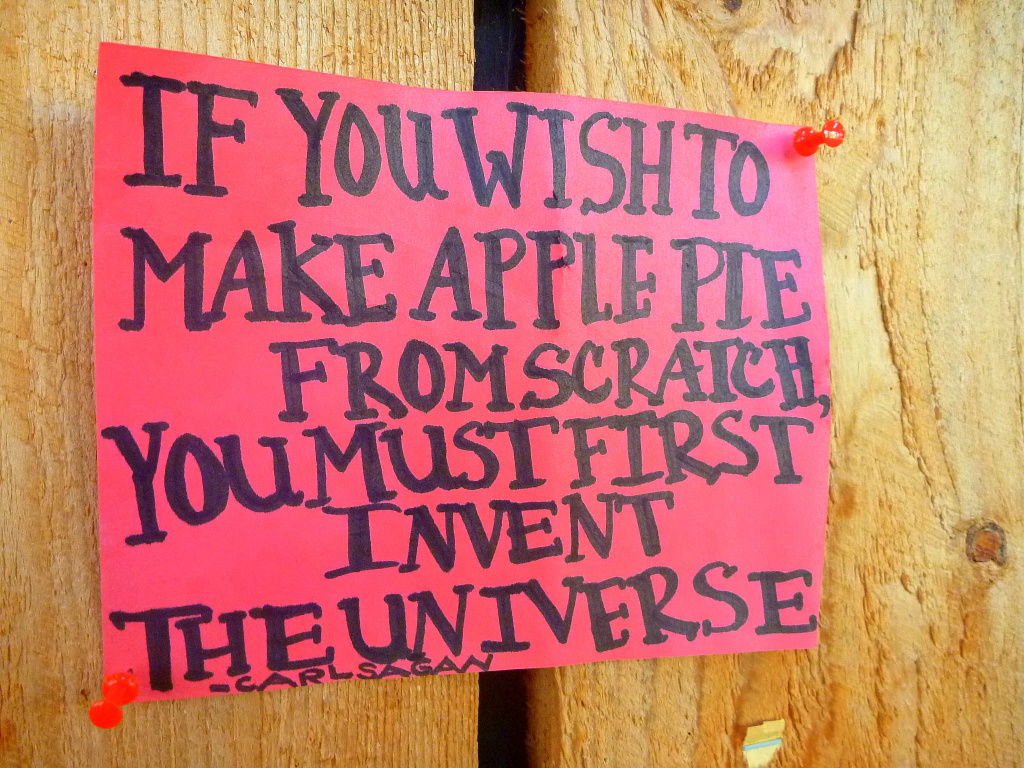 IF YOU WISH TO
MAKE APPLE PIE
FROM SCRATCH,
YOU MUST FIRST
INVENT
THE UNIVERSE
-CARL SAGAN